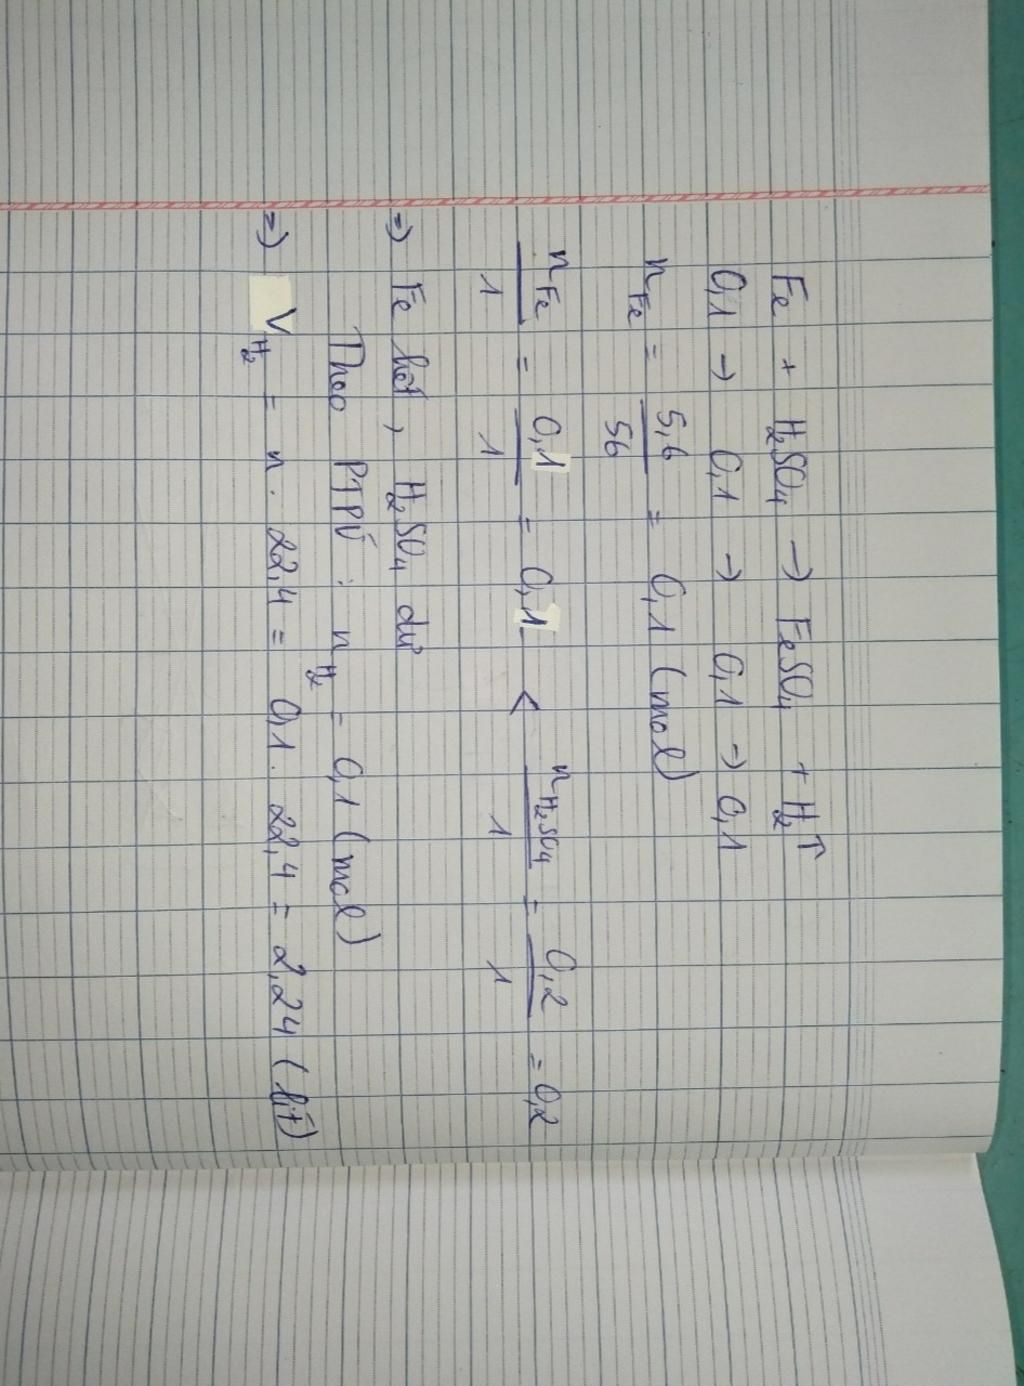 Fe + H₂SO₄ → FeSO₄ + H₂↑
0,1 → 0,1 → 0,1 → 0,1
n_Fe = 5,6/56 = 0,1 (mol)
n_Fe/1 = 0,1/1 = 0,1 < n_H₂SO₄/1 = 0,2/1 = 0,2
=) Fe hết, H₂SO₄ dư
Theo PTPƯ : n_H₂ = 0,1 (mol)
=) V_H₂ = n. 22,4 = 0,1. 22,4 = 2,24 (lít)